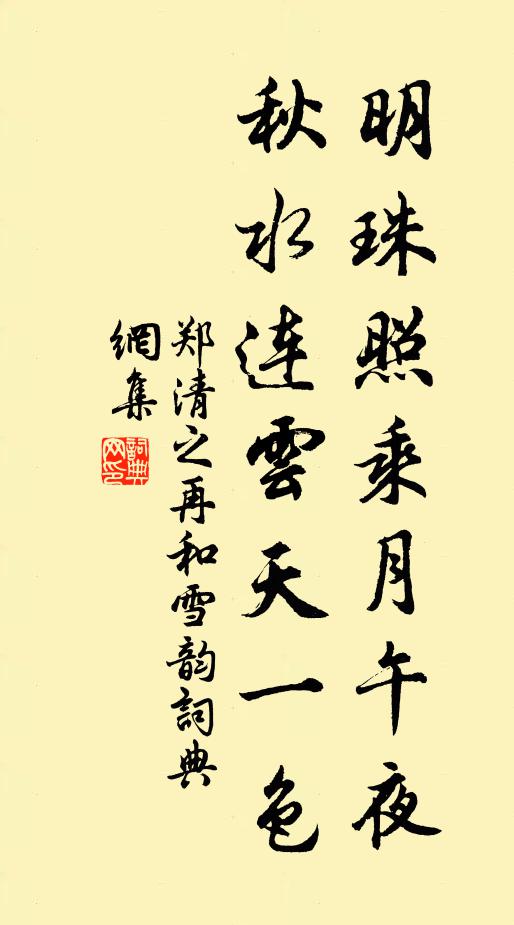 明珠照乘月午夜
秋水连雲天一色
郑清之再和雪韵詞典
網集
詞典
网印